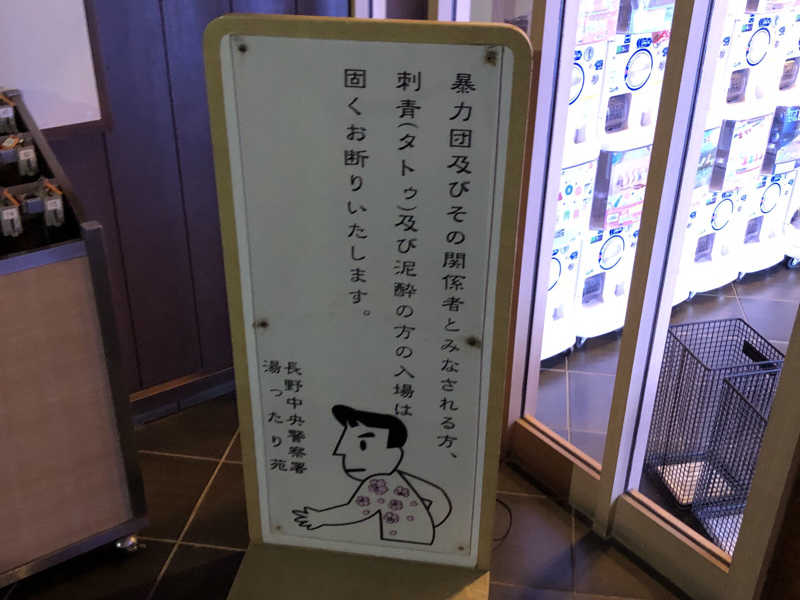 暴力団及びその関係者とみなされる方、
刺青(タトゥ)及び泥酔の方の入場は
固くお断りいたします。
長野中央警察署
湯ったり苑